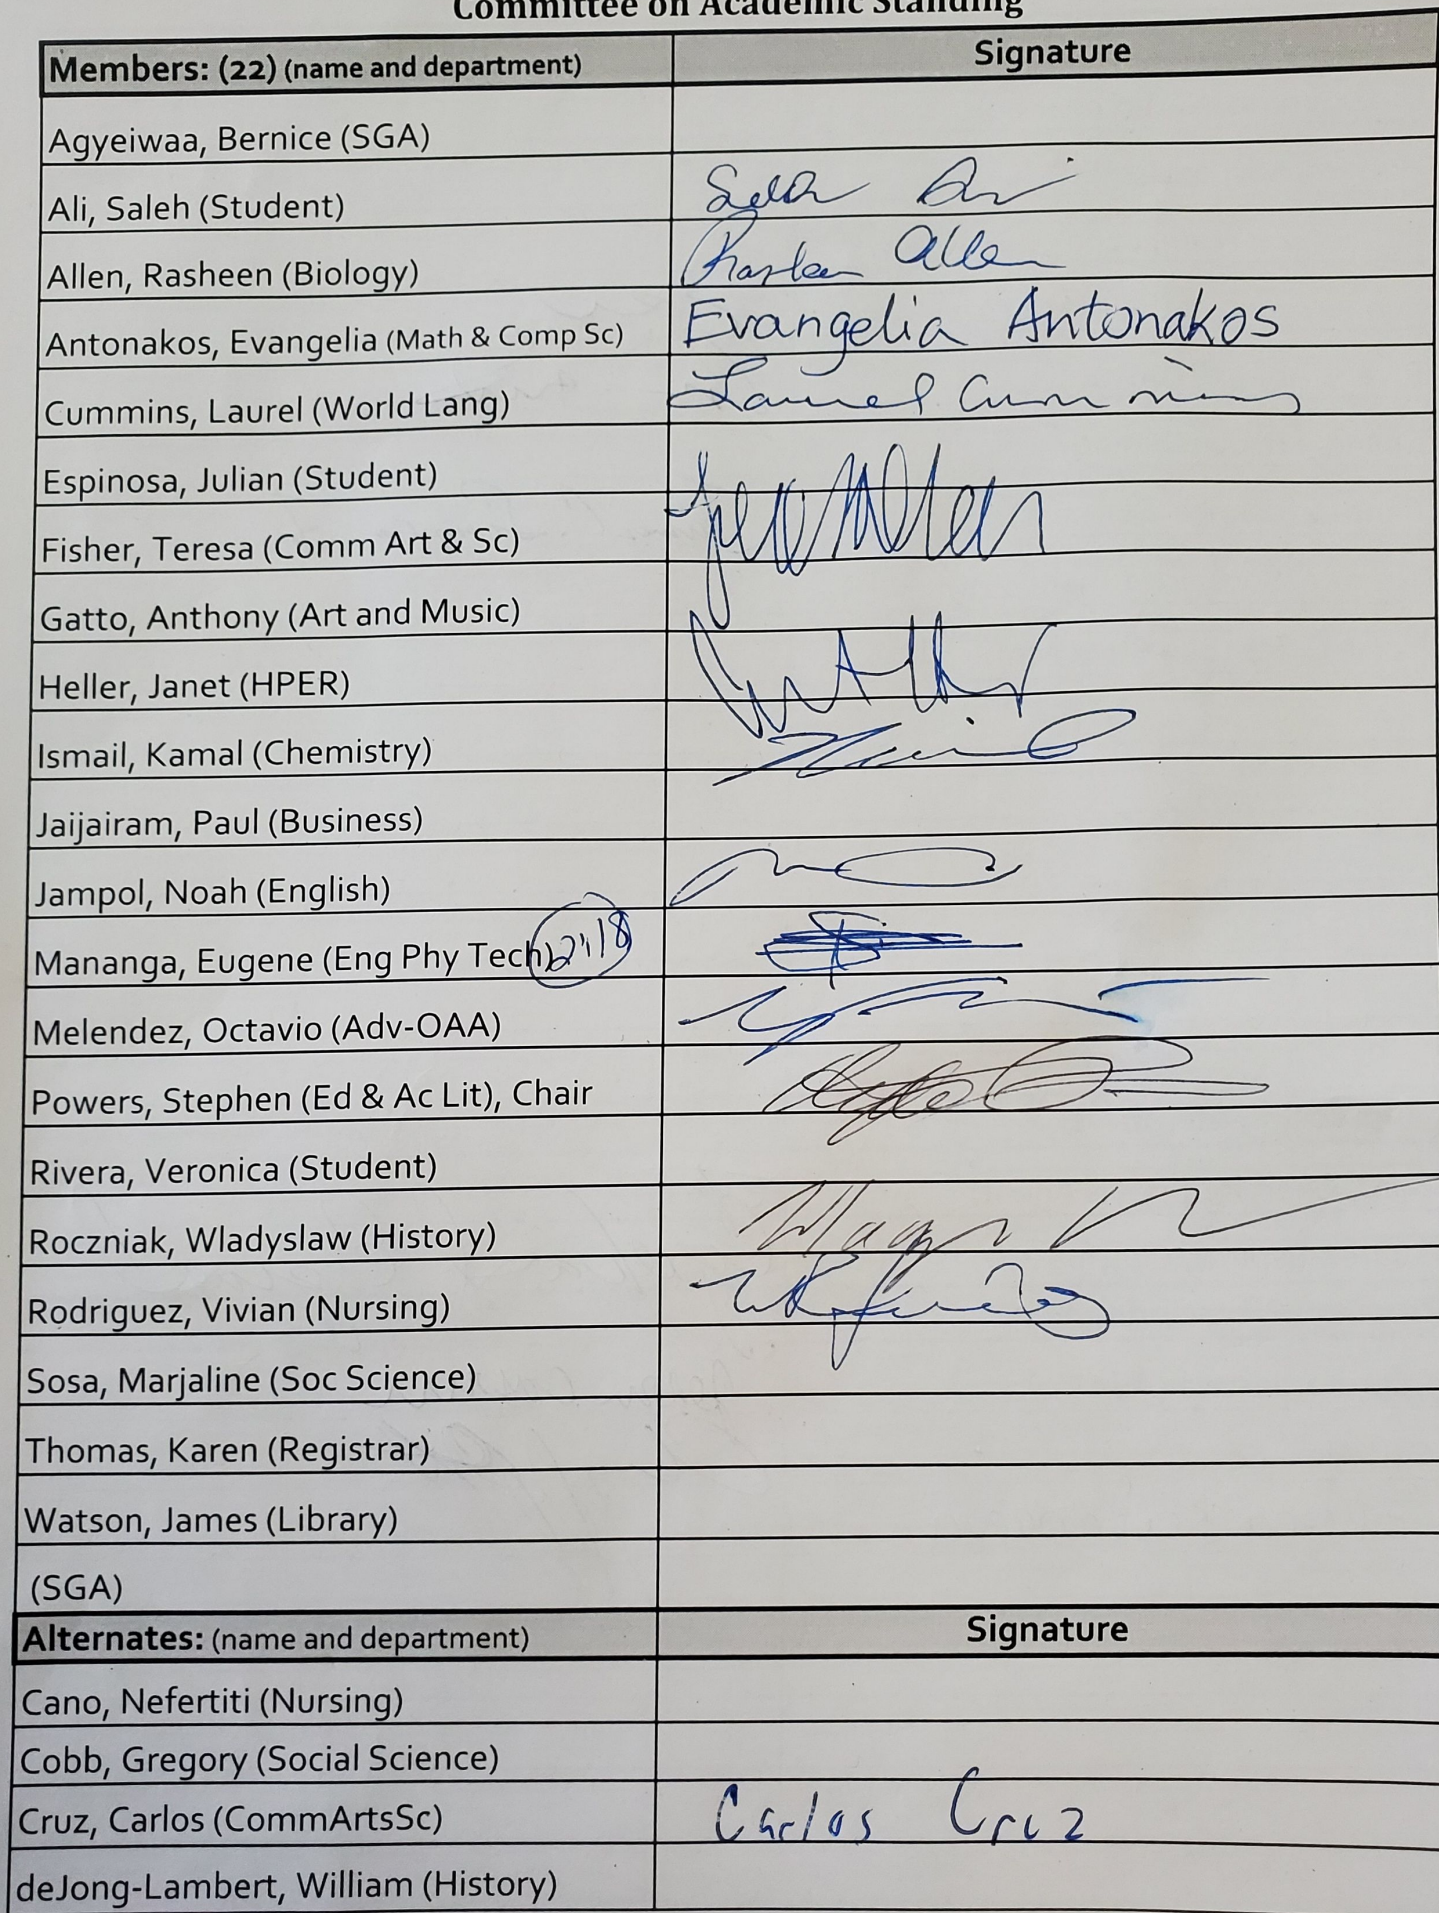 Committee on Academic Standing
Members: (22) (name and department) Signature
Agyeiwaa, Bernice (SGA)
Ali, Saleh (Student)
Allen, Rasheen (Biology) Allen
Antonakos, Evangelia (Math & Comp Sc) Evangelia Antonakos
Cummins, Laurel (World Lang) Laurel Cummins
Espinosa, Julian (Student)
Fisher, Teresa (Comm Art & Sc)
Gatto, Anthony (Art and Music)
Heller, Janet (HPER)
Ismail, Kamal (Chemistry)
Jaijairam, Paul (Business)
Jampol, Noah (English)
Mananga, Eugene (Eng Phy Tech)
Melendez, Octavio (Adv-OAA)
Powers, Stephen (Ed & Ac Lit), Chair
Rivera, Veronica (Student)
Roczniak, Wladyslaw (History)
Rodriguez, Vivian (Nursing)
Sosa, Marjaline (Soc Science)
Thomas, Karen (Registrar)
Watson, James (Library)
(SGA)
Alternates: (name and department) Signature
Cano, Nefertiti (Nursing)
Cobb, Gregory (Social Science)
Cruz, Carlos (CommArtsSc) Carlos Cruz
deJong-Lambert, William (History)